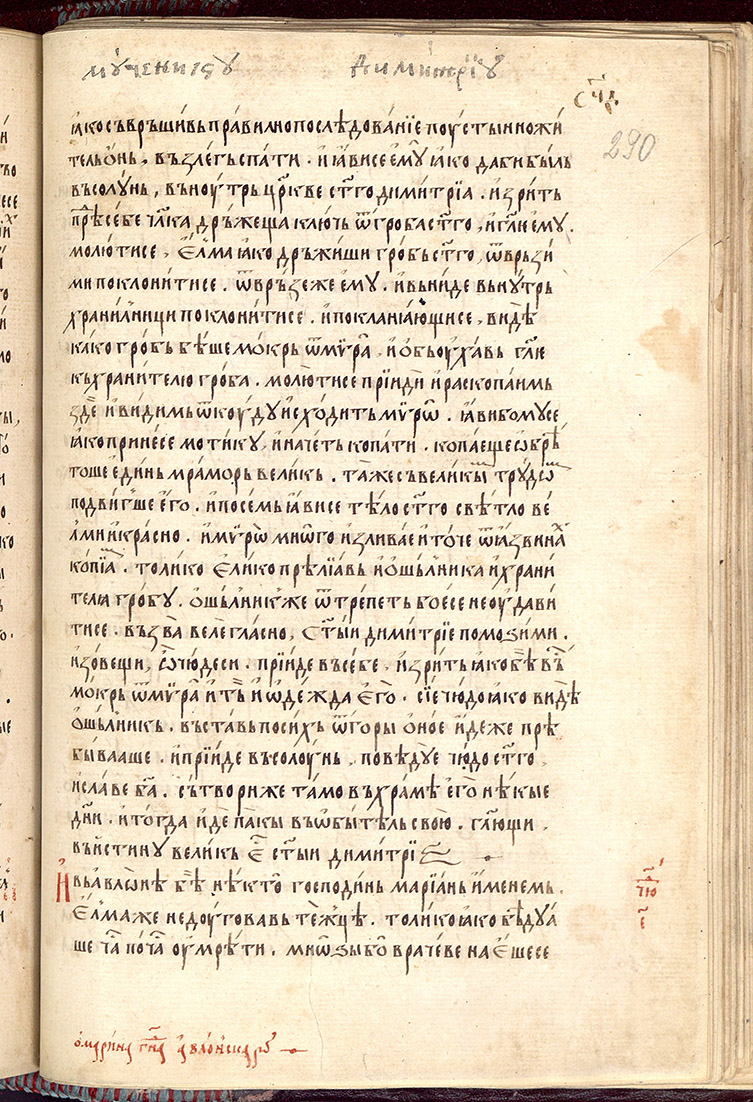 мꙋ́чени1ꙋ димитрїꙋ
сч҃д.
290
ꙗкосъврьши́вь пра́вилно послѣ́дованїе поустынножи́
тель о́нь, възлегь спати. и ꙗ́висе ємꙋ̀ ꙗко да би быль
въ солꙋ́нь, въноу́трь црк҃ве ст҃го димитрїа. и зри́ть
прѣⷣ се́бе чл҃ка дрь́жеща клю́чь ѿ гроба ст҃го, и гл҃ю є́мꙋ.
молю́ тисе, є́лма ꙗко дрь́жиши гро́бь ст҃го, ѿврь́зи
ми поклони́тисе. ѿврь́зе же є́мꙋ. и вьни́де вьнꙋ́трь
храни́лници поклони́тисе. и покланꙗ́ющисе, видѣ̀
ка́ко гро́бь бѣ́ше мо́крь ѿ мѵ́ра, и обьоуха́вь гл҃ю
къ храни́телю гро́ба. молю́тисе прїиди̏ и раскопа́имь
зде̏ и ви́димь ѿкоу́дꙋ исхо́дить мѵ́рѡ. ꙗ́ви бо мꙋ се
ꙗко прине́се моти́кꙋ, и на́четь копа́ти. копа́еще ѡбрѣ́
тоше є́динь мра́морь вели́кь. та́же съ великыⷨ трꙋ́дѡⷨ
подви́гше є́го. и по се́мь ꙗ́висе тѣ́ло ст҃го свѣ́тло ве
лми и́ красно. и мѵ́рѡ мнѡ́го изливае́и то́че ѿ ꙗ́звинаⷯ
ко́пїа. то́лико є́лико прѣлїꙗ́вь и́ ошьлника и храни́
телꙗ гро́бꙋ. ошьлник же ѿ тре́петь боесе не оу́дави́
тисе. възва̏ веле гла́сно, ст҃ы́и дими́трїе помоѕи́ ми.
изо́вещи, ѽ чюдеси. прїиде въ се́бе, и зри́ть ꙗко бѣ̏ въⷭ҇
мо́крь ѿ мѵ́ра и тъ̏ и ѡде́жда є́го. сїе чю́до ꙗко ви́дѣ
ошьлникь. въста́вь по си́хь ѿ горы о́ное и́деже прѣ
быва́аше. и прїиде въ солоу́нь, повѣ́дꙋе чю́до ст҃го,
и сла́ве ба҃. сътвори́ же та́мо въ хра́мѣ є́го нѣ́кые
дн҃и. и тогда и́де па́кы въ ѡби́тѣль свою. гл҃ющи,
въ и́стинꙋ вели́кь є҃ ст҃ы́и димитрї
И вь а́влѡ́нѣ бѣ̏ нѣ́ктѡ̀ господи́нь марїа́нь и́менемь.
є́лма же недоу́говавь те́жцѣ. толи́ко ꙗко бѣ́дꙋа́
ше ча҃ по́ ча҃ оу́мрѣти. мнѡѕы бѡ̀ враче́ве на є́шесе
чюⷣ
є҃
ѡ марїна гн҃а а́влѡ́нскаго